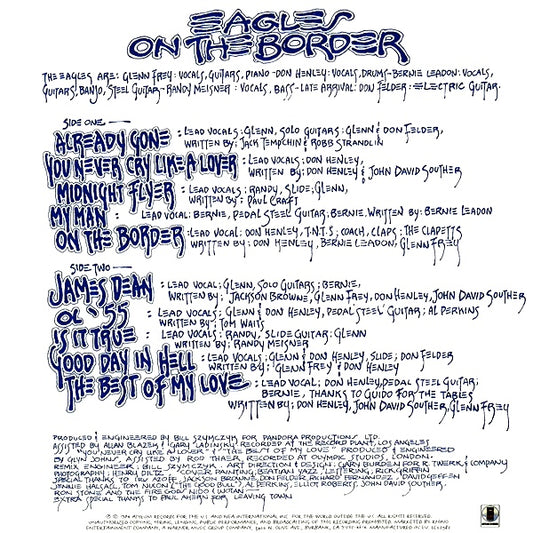 EAGLES
ON THE BORDER
THE EAGLES ARE: GLENN FREY: VOCALS, GUITARS, PIANO - DON HENLEY: VOCALS, DRUMS - BERNIE LEADON: VOCALS,
GUITARS, BANJO, STEEL GUITAR - RANDY MEISNER: VOCALS, BASS - LATE ARRIVAL: DON FELDER: ELECTRIC GUITAR.
SIDE ONE —
ALREADY GONE : LEAD VOCALS: GLENN, SOLO GUITARS: GLENN & DON FELDER,
WRITTEN BY: JACK TEMPCHIN & ROBB STRANDLIN
YOU NEVER CRY LIKE A LOVER : LEAD VOCALS: DON HENLEY,
WRITTEN BY: DON HENLEY & JOHN DAVID SOUTHER
MIDNIGHT FLYER : LEAD VOCALS: RANDY, SLIDE: GLENN,
WRITTEN BY: PAUL CRAFT
MY MAN : LEAD VOCAL: BERNIE, PEDAL STEEL GUITAR: BERNIE. WRITTEN BY: BERNIE LEADON
ON THE BORDER : LEAD VOCAL: DON HENLEY, T.N.T.S; COACH, CLAPS: THE CLAPETTS
WRITTEN BY: DON HENLEY, BERNIE LEADON, GLENN FREY
SIDE TWO —
JAMES DEAN : LEAD VOCAL: GLENN, SOLO GUITARS: BERNIE,
WRITTEN BY: JACKSON BROWNE, GLENN FREY, DON HENLEY, JOHN DAVID SOUTHER
OL '55 : LEAD VOCALS: GLENN & DON HENLEY, PEDAL STEEL GUITAR: AL PERKINS
WRITTEN BY: TOM WAITS
IS IT TRUE : LEAD VOCALS: RANDY, SLIDE GUITAR: GLENN
WRITTEN BY: RANDY MEISNER
GOOD DAY IN HELL : LEAD VOCALS: GLENN & DON HENLEY, SLIDE: DON FELDER
WRITTEN BY: GLENN FREY & DON HENLEY
THE BEST OF MY LOVE : LEAD VOCAL: DON HENLEY, PEDAL STEEL GUITAR:
BERNIE, THANKS TO GUIDO FOR THE TABLES
WRITTEN BY: DON HENLEY, JOHN DAVID SOUTHER, GLENN FREY
PRODUCED & ENGINEERED BY BILL SZYMCZYK FOR PANDORA PRODUCTIONS LTD.
ASSISTED BY ALLAN BLAZEK & GARY LADINSKY RECORDED AT THE RECORD PLANT, LOS ANGELES
"YOU NEVER CRY LIKE A LOVER" & "THE BEST OF MY LOVE" PRODUCED & ENGINEERED
BY GLYN JOHNS, ASSISTED BY ROD THAER, RECORDED AT OLYMPIC STUDIOS, LONDON.
REMIX ENGINEER: BILL SZYMCZYK. ART DIRECTION & DESIGN: GARY BURDEN FOR R. TWERK & COMPANY
PHOTOGRAPHY: HENRY DILTZ. COVER PAINTING: BEATIEN YAZZ. LETTERING, RICK GRIFFIN
SPECIAL THANKS TO: IRV AZOFF, JACKSON BROWNE, DON FELDER, RICHARD FERNANDEZ, DAVID GEFFEN
TOM NILCON & AL PERKINS, ELLIOT ROBERTS, JOHN DAVID SOUTHER.
RON STONE AND THE FIRE GODS NIDO & WOTAN —
EXTRA SPECIAL THANKS TO PHIL AHERN FOR LEAVING TOWN
1974 ASYLUM RECORDS FOR THE U.S. AND WEA INTERNATIONAL INC. FOR THE WORLD OUTSIDE THE U.S. ALL RIGHTS RESERVED.
UNAUTHORIZED COPYING, HIRING, LENDING, PUBLIC PERFORMANCE, AND BROADCASTING OF THIS RECORDING PROHIBITED. MARKETED BY RHINO
ENTERTAINMENT COMPANY, A WARNER MUSIC GROUP COMPANY, BURBANK, CA